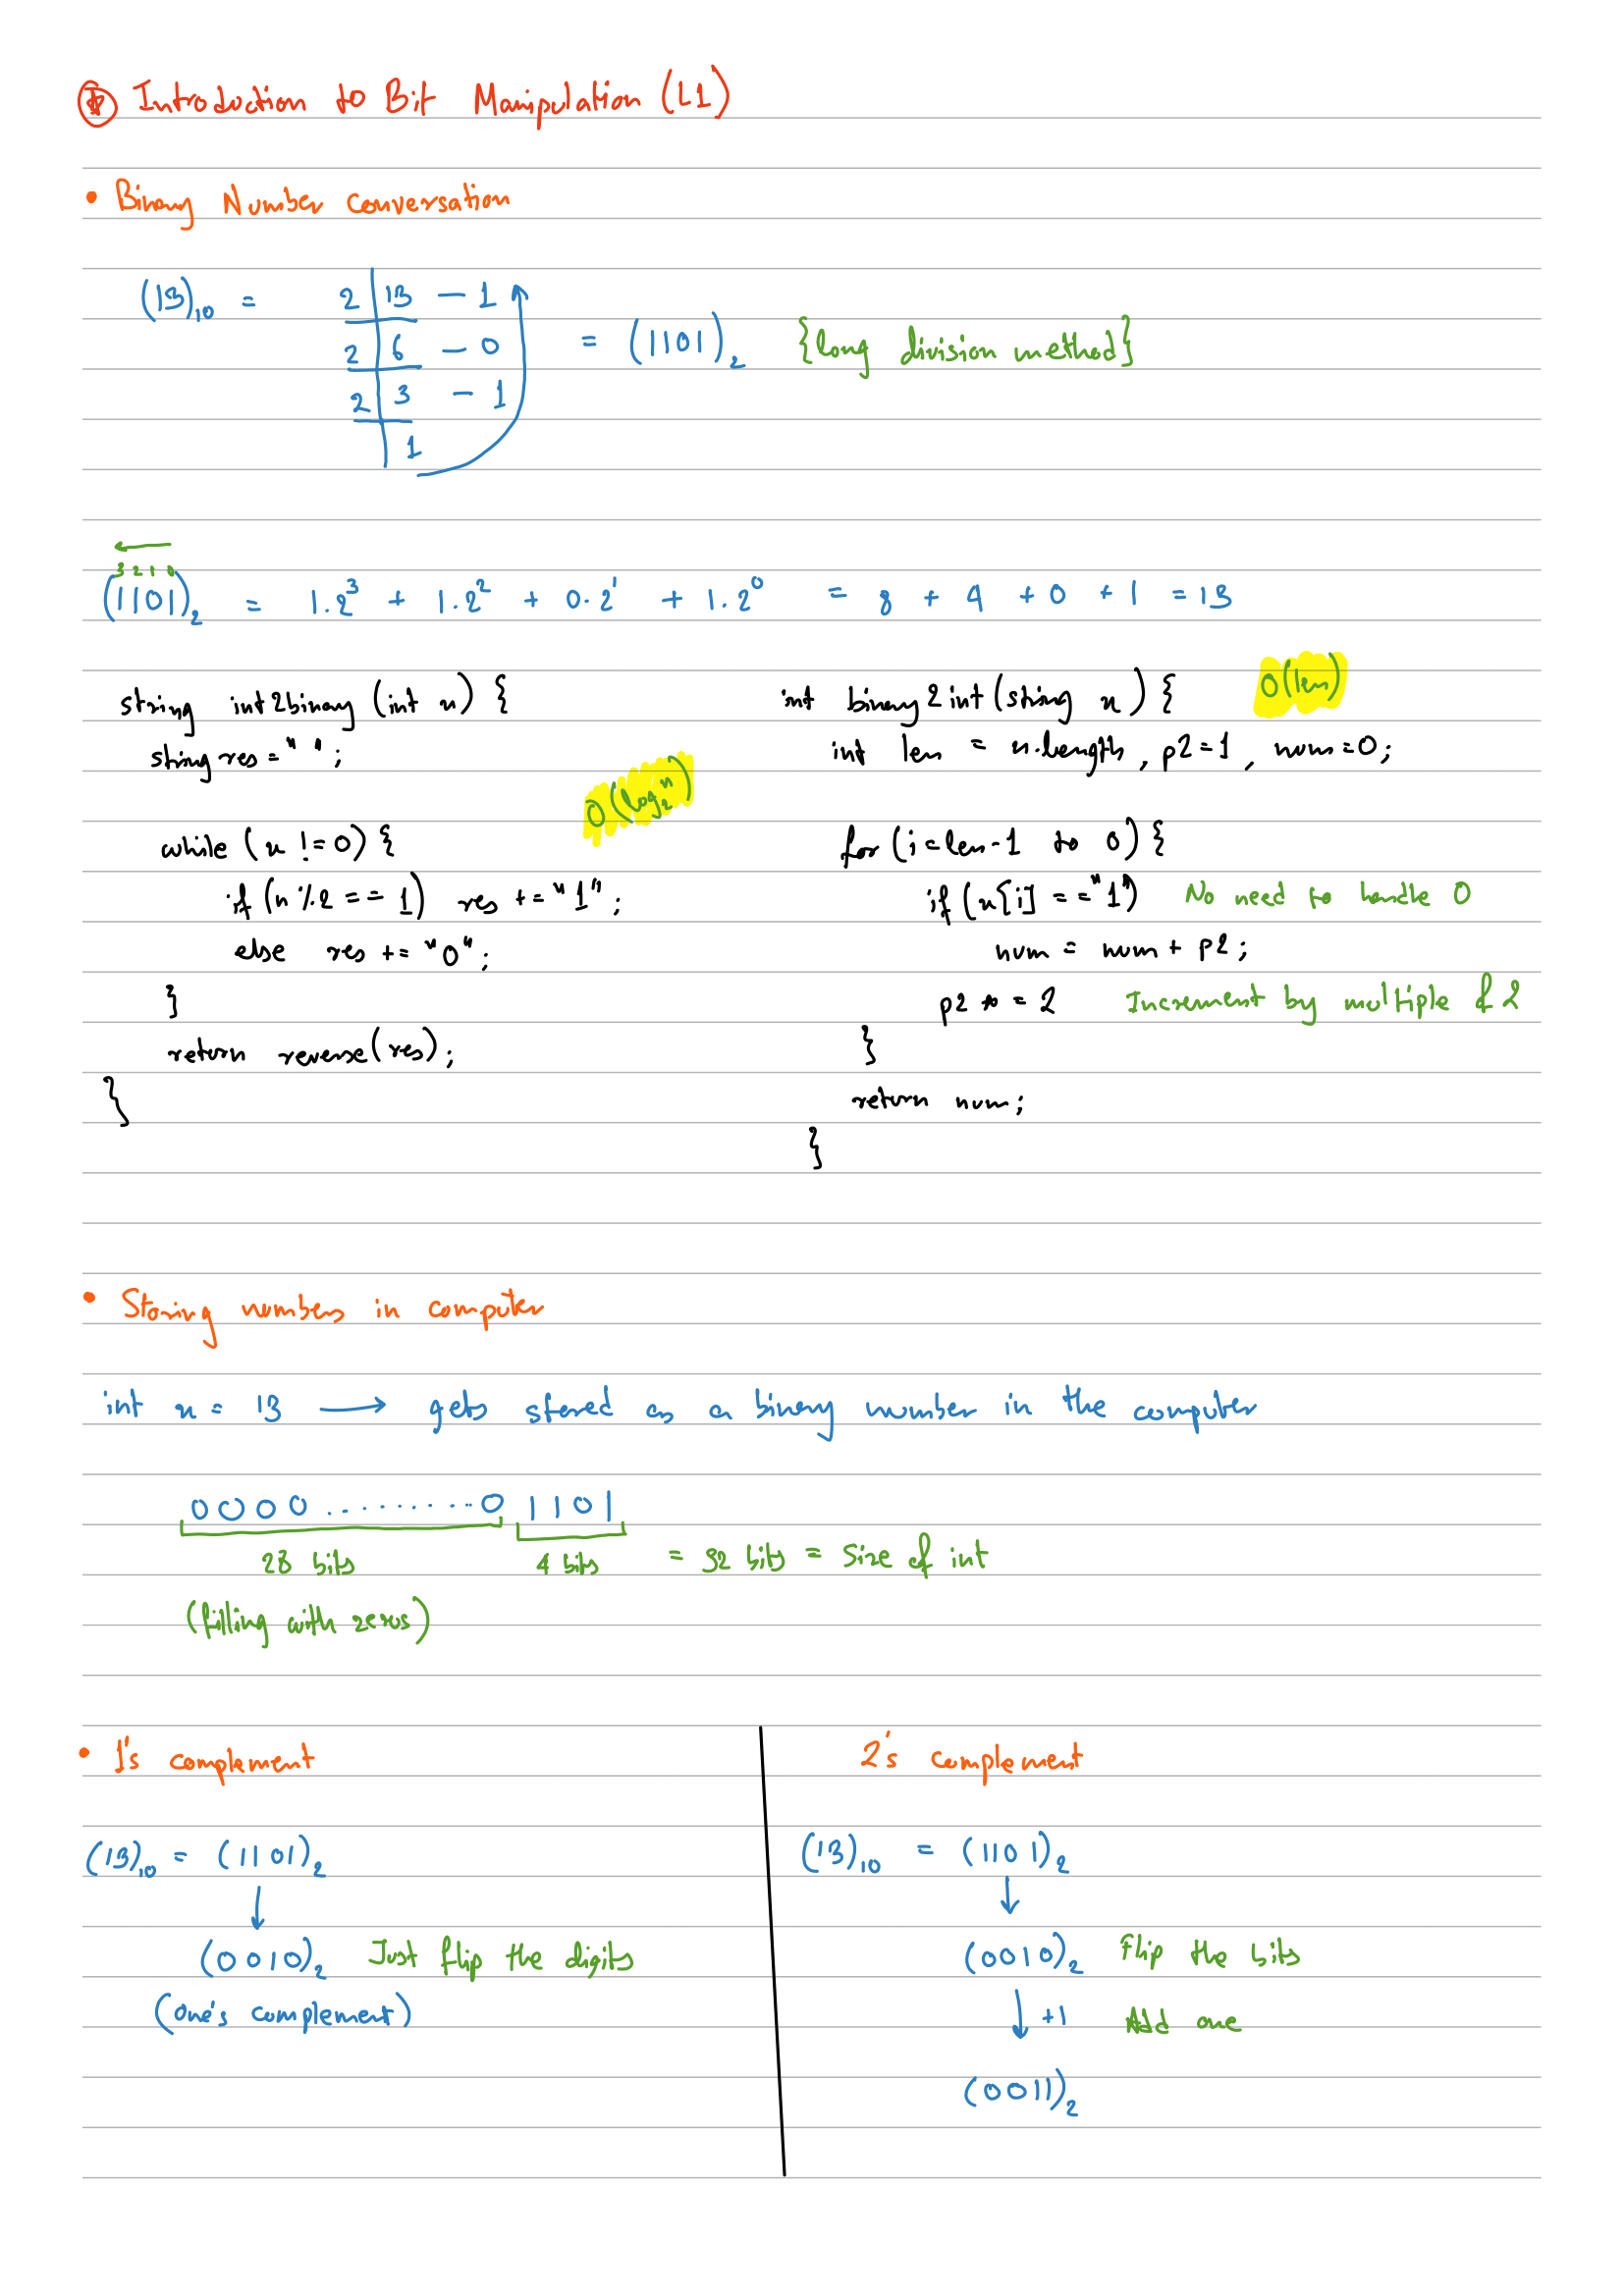 Introduction to Bit Manipulation (L1)
• Binary Number Conversation
(13)₁₀ = 2 | 13 – 1
2 | 6 – 0 = (1101)₂ {long division method}
2 | 3 – 1
1
3 2 1 0
(1101)₂ = 1.2³ + 1.2² + 0.2¹ + 1.2⁰ = 8 + 4 + 0 + 1 = 13
string int2binary (int n) {
string res = " ";
O(log₂n)
while (n != 0) {
if (n % 2 == 1) res += "1";
else res += "0";
}
return reverse(res);
}
int binary2int (string n) { O(len)
int len = n.length, p2=1, num=0;
for (i=len-1 to 0) {
if (n[i] == "1") No need to handle 0
num = num + p2;
p2 *= 2 Increment by multiple of 2
}
return num;
}
• Storing numbers in computer
int n = 13 → gets stored as a binary number in the computer
0000..........0 1101
28 bits 4 bits = 32 bits = Size of int
(filling with zeros)
• 1's complement
(13)₁₀ = (1101)₂
↓
(0010)₂ Just flip the digits
(one's complement)
2's complement
(13)₁₀ = (1101)₂
↓
(0010)₂ Flip the bits
↓ +1 Add one
(0011)₂